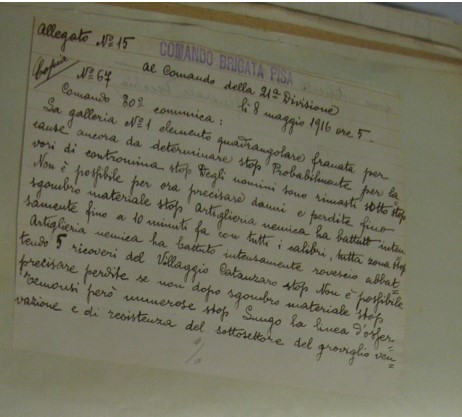 Allegato Nº 15
COMANDO BRIGATA PISA
Copia
Nº 67 al Comando della 21ª Divisione
li 8 maggio 1916 ore 5.
Comando 30º comunica:
La galleria Nº 1 elemento quadrangolare franata per
cause ancora da determinare stop Probabilmente per la-
vori di contromina stop Degli uomini sono rimasti sotto stop
Non è possibile per ora precisare danni e perdite fino
sgombro materiale stop Artiglieria nemica ha battuto inten-
samente fino a 10 minuti fa con tutti i calibri, tutta zona stop
Artiglieria nemica ha battuto intensamente rovescio abbat-
tendo 5 ricoveri del Villaggio Catanzaro stop Non è possibile
precisare perdite se non dopo sgombro materiale stop
Temonsi però numerose stop Lungo la linea d'osser-
vazione e di resistenza del sottosettore del groviglio ven-